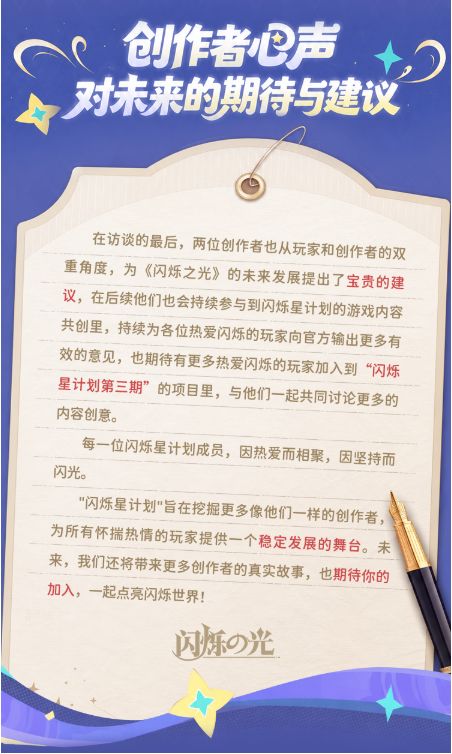 创作者心声
对未来的期待与建议
在访谈的最后，两位创作者也从玩家和创作者的双
重角度，为《闪烁之光》的未来发展提出了宝贵的建
议，在后续他们也会持续参与到闪烁星计划的游戏内容
共创里，持续为各位热爱闪烁的玩家向官方输出更多有
效的意见，也期待有更多热爱闪烁的玩家加入到“闪烁
星计划第三期”的项目里，与他们一起共同讨论更多的
内容创意。
每一位闪烁星计划成员，因热爱而相聚，因坚持而
闪光。
"闪烁星计划"旨在挖掘更多像他们一样的创作者，
为所有怀揣热情的玩家提供一个稳定发展的舞台。未
来，我们还将带来更多创作者的真实故事，也期待你的
加入，一起点亮闪烁世界！
闪烁の光